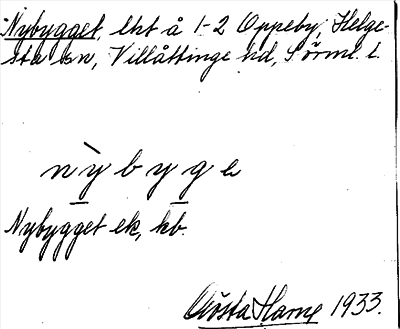 Nybygget, lht å 1-2 Oppeby, Helge-
sta sn, Villåttinge hd, Sörml. l.
nỳbyge
Nybygget ek, kb.
Gösta Harne 1933.